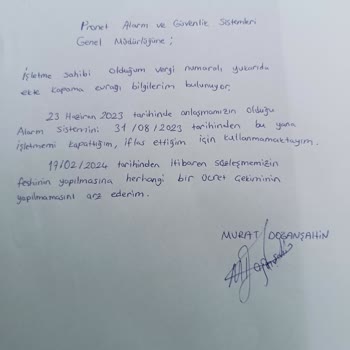 Pronet Alarm ve Güvenlik Sistemleri
Genel Müdürlüğüne;
İşletme sahibi olduğum vergi numaralı, yukarıda
ekte kapama evrağı bilgilerim bulunuyor.
23 Haziran 2023 tarihinde anlaşmamızın olduğu
Alarm Sistemini 31/08/2023 tarihinden bu yana
işletmemi kapattığım, iflas ettiğim için kullanmamaktayım.
17/02/2024 tarihinden itibaren sözleşmemizin
feshinin yapılmasına herhangi bir ücret çekiminin
yapılmamasını arz ederim.
MURAT DOĞANŞAHİN